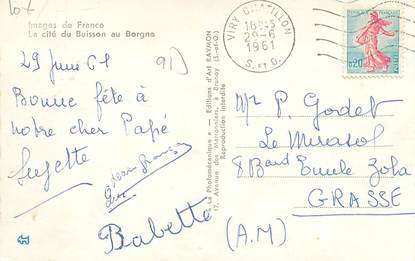 Images de France
La cité du Buisson au Borgne
91)
29 Juin 61
Bonne fête à
notre cher Papé
Suzette
Babette
VIRY CHATILLON
16H-5
29-6
1961
S. et O.
0,20
« La Photomécanique » - Editions d'Art RAYMON
17, Avenue des Marronniers, à Brunoy (S.-et-O.)
Reproduction interdite
Mr P. Godet
Le Mirasol
8 Bard Emile Zola
GRASSE
(A.M)